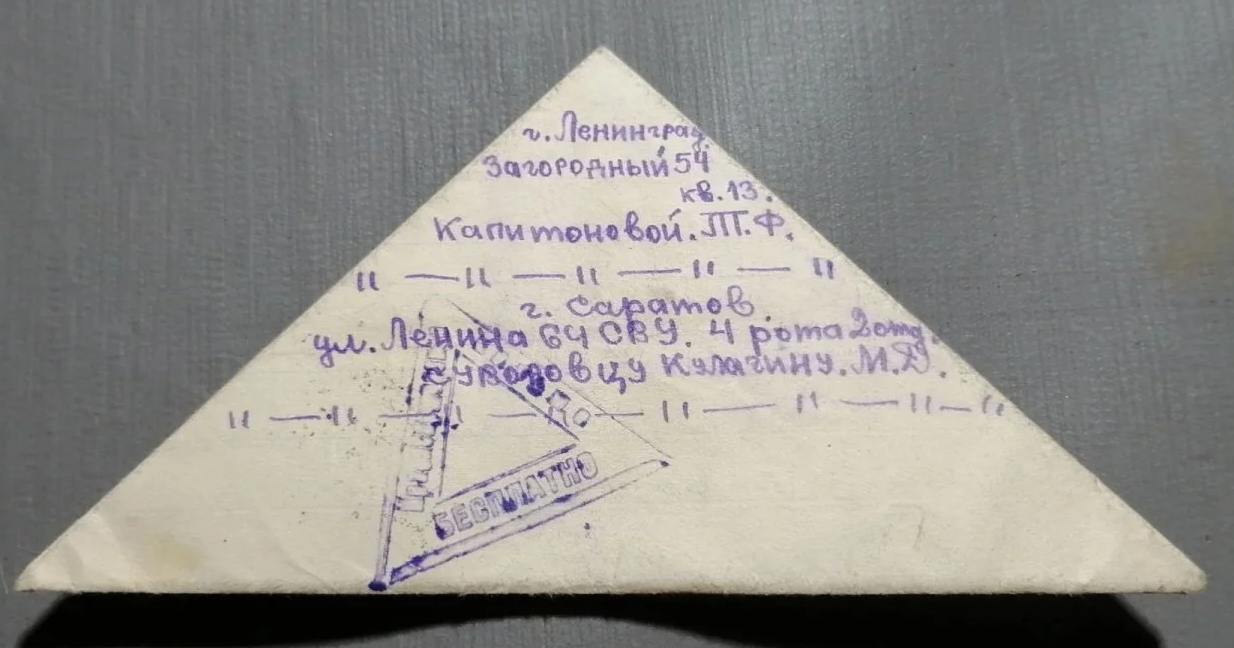 г. Ленинград.
Загородный 54
кв. 13.
Капитоновой. Т. Ф.
" — " — " — " — "
г. Саратов.
ул. Ленина 64 СВУ. 4 рота 2 отд.
Суворовцу Кулагину. М. Д.
" — " — " — " — " — " — "
БЕСПЛАТНО